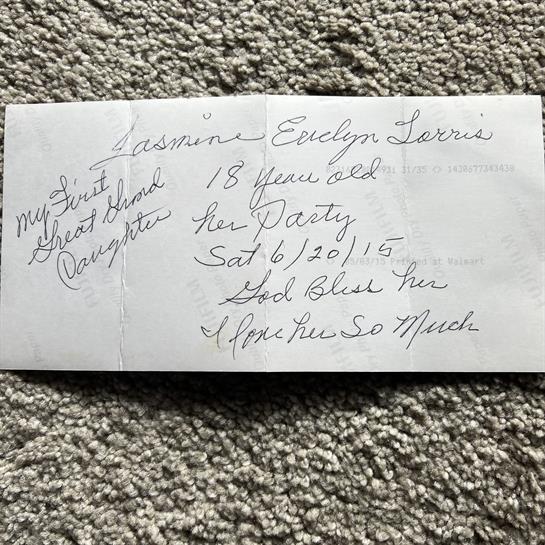 Jasmine Evelyn Torris
18 year old
her Party
Sat 6/20/15
God Bless her
I love her So Much
My First
Great Grand
Daughter
31/35 <> 1430677343438
/03/15 Printed at Walmart
FUJIFILM